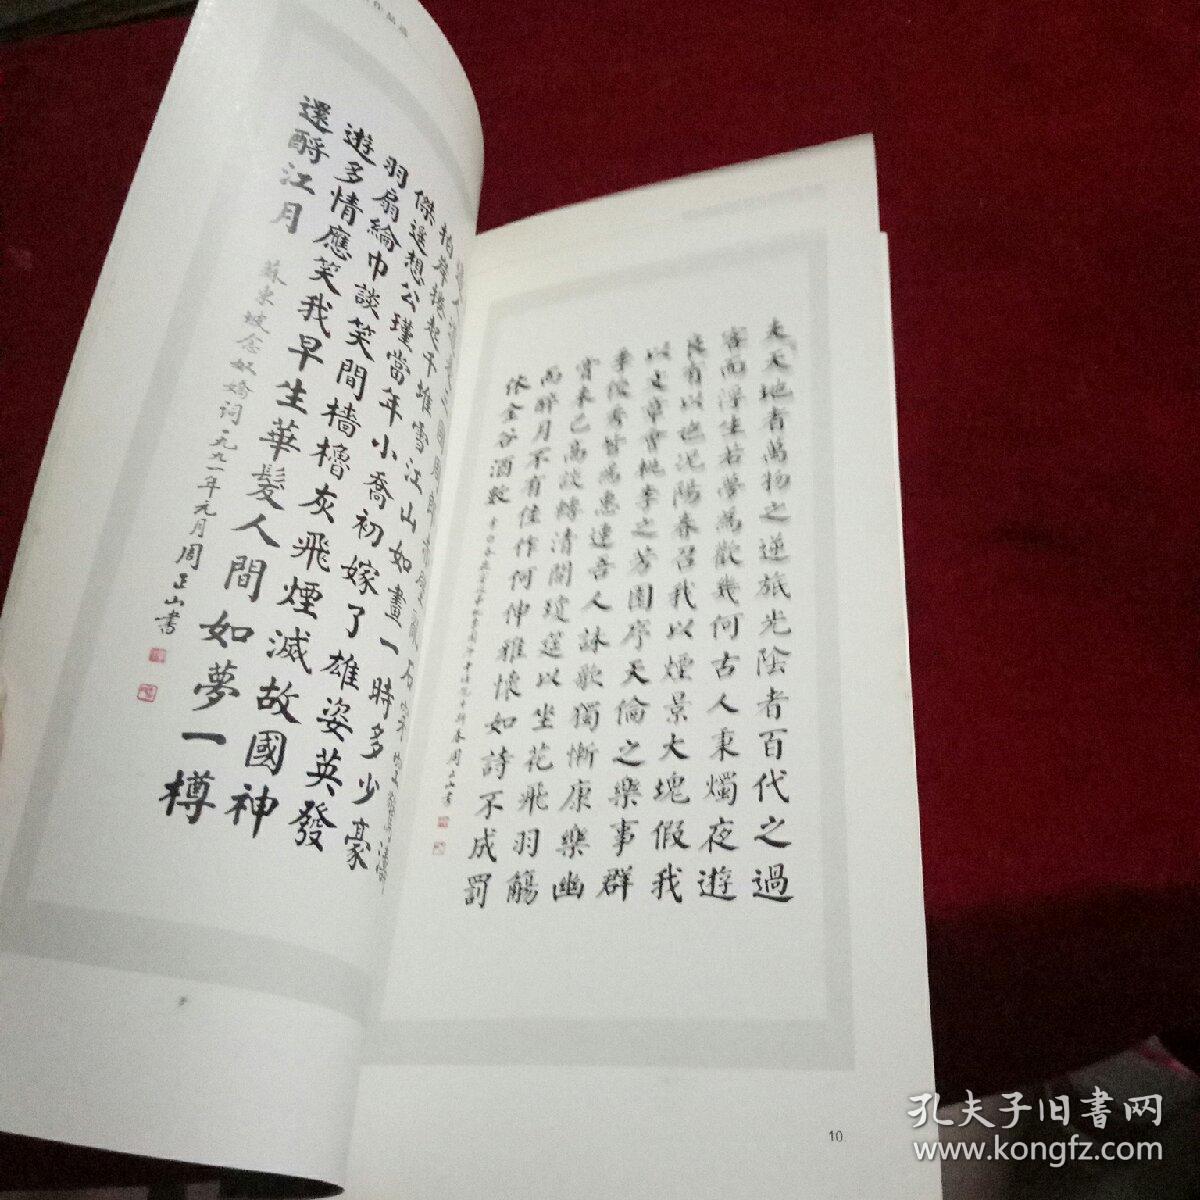 拍岸捲起千堆雪江山如畫一時多少豪
傑遥想公瑾當年小喬初嫁了雄姿英發
羽扇綸巾談笑間檣櫓灰飛煙滅故國神
遊多情應笑我早生華髮人間如夢一樽
還酹江月
蘇東坡念奴嬌詞一九九一年元月周正山書
夫天地者萬物之逆旅光陰者百代之過
客而浮生若夢為歡幾何古人秉燭夜遊
良有以也況陽春召我以煙景大塊假我
以文章會桃李之芳園序天倫之樂事群
季俊秀皆為惠連吾人詠歌獨慚康樂幽
賞未已高談轉清開瓊筵以坐花飛羽觴
而醉月不有佳作何伸雅懷如詩不成罰
依金谷酒數
10
孔夫子旧書网
www.kongfz.com